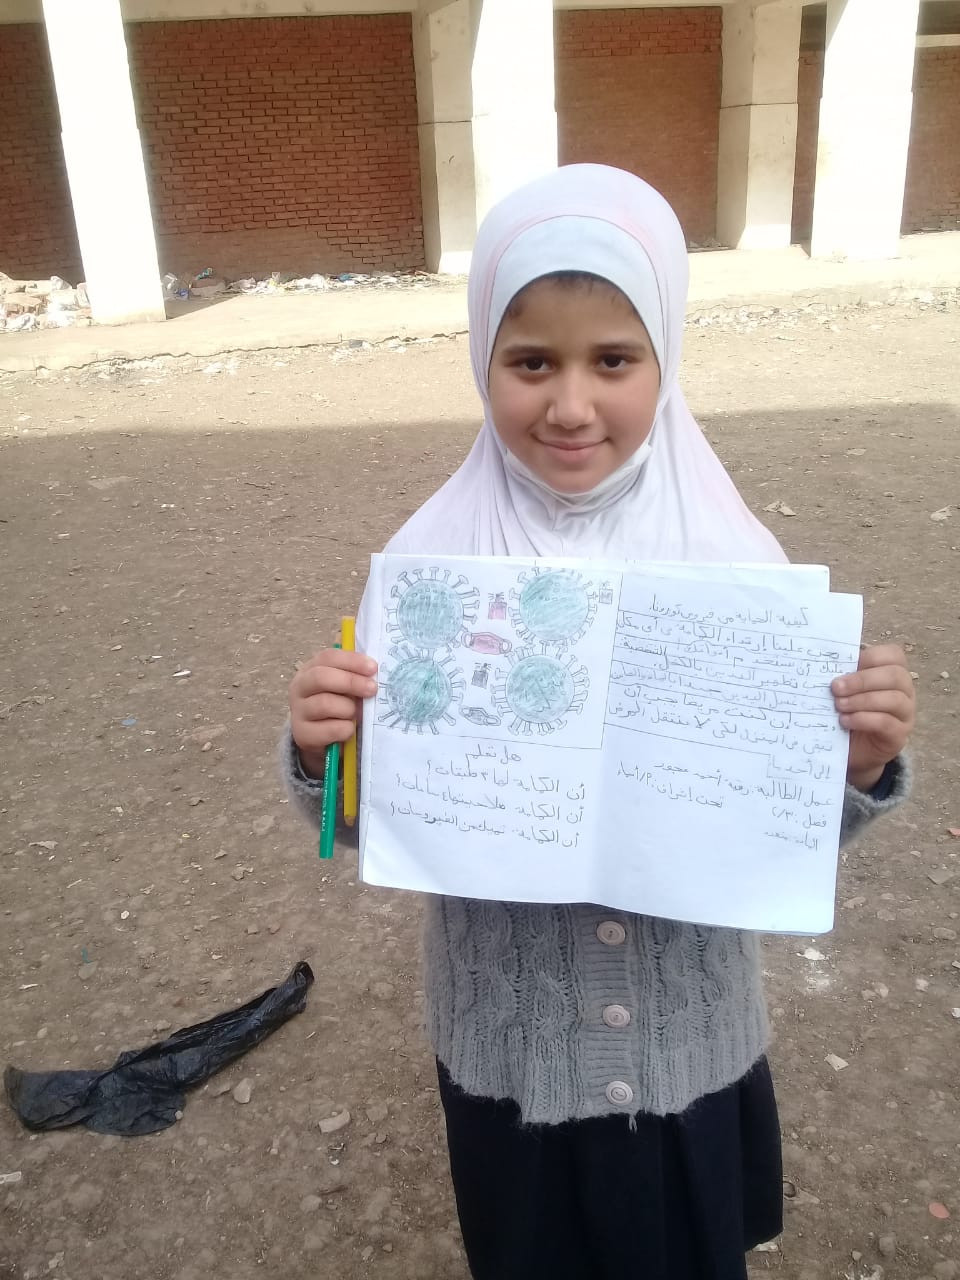 كيفية الحماية من فيروس كورونا.
يجب علينا إرتداء الكمامة فى أى مكان
عليك أن تستخدم أدواتك الشخصية.
يجب تطهير اليدين بالكحل.
يجب غسل اليدين جيدا بالماء والصابون
ويجب إن كنت مريضا يجب أن
تبقى فى المنزل لكى لا ينتقل المرض
إلى أحد ما
عمل الطالبة: رقية أحمد
فصل: ٢/٣
تحت إشراف: أ/
هل تعلم
أن الكمامة لها ٣ طبقات؟
أن الكمامة صلاحيتها ٤ ساعات؟
أن الكمامة تحميك من الفيروسات؟